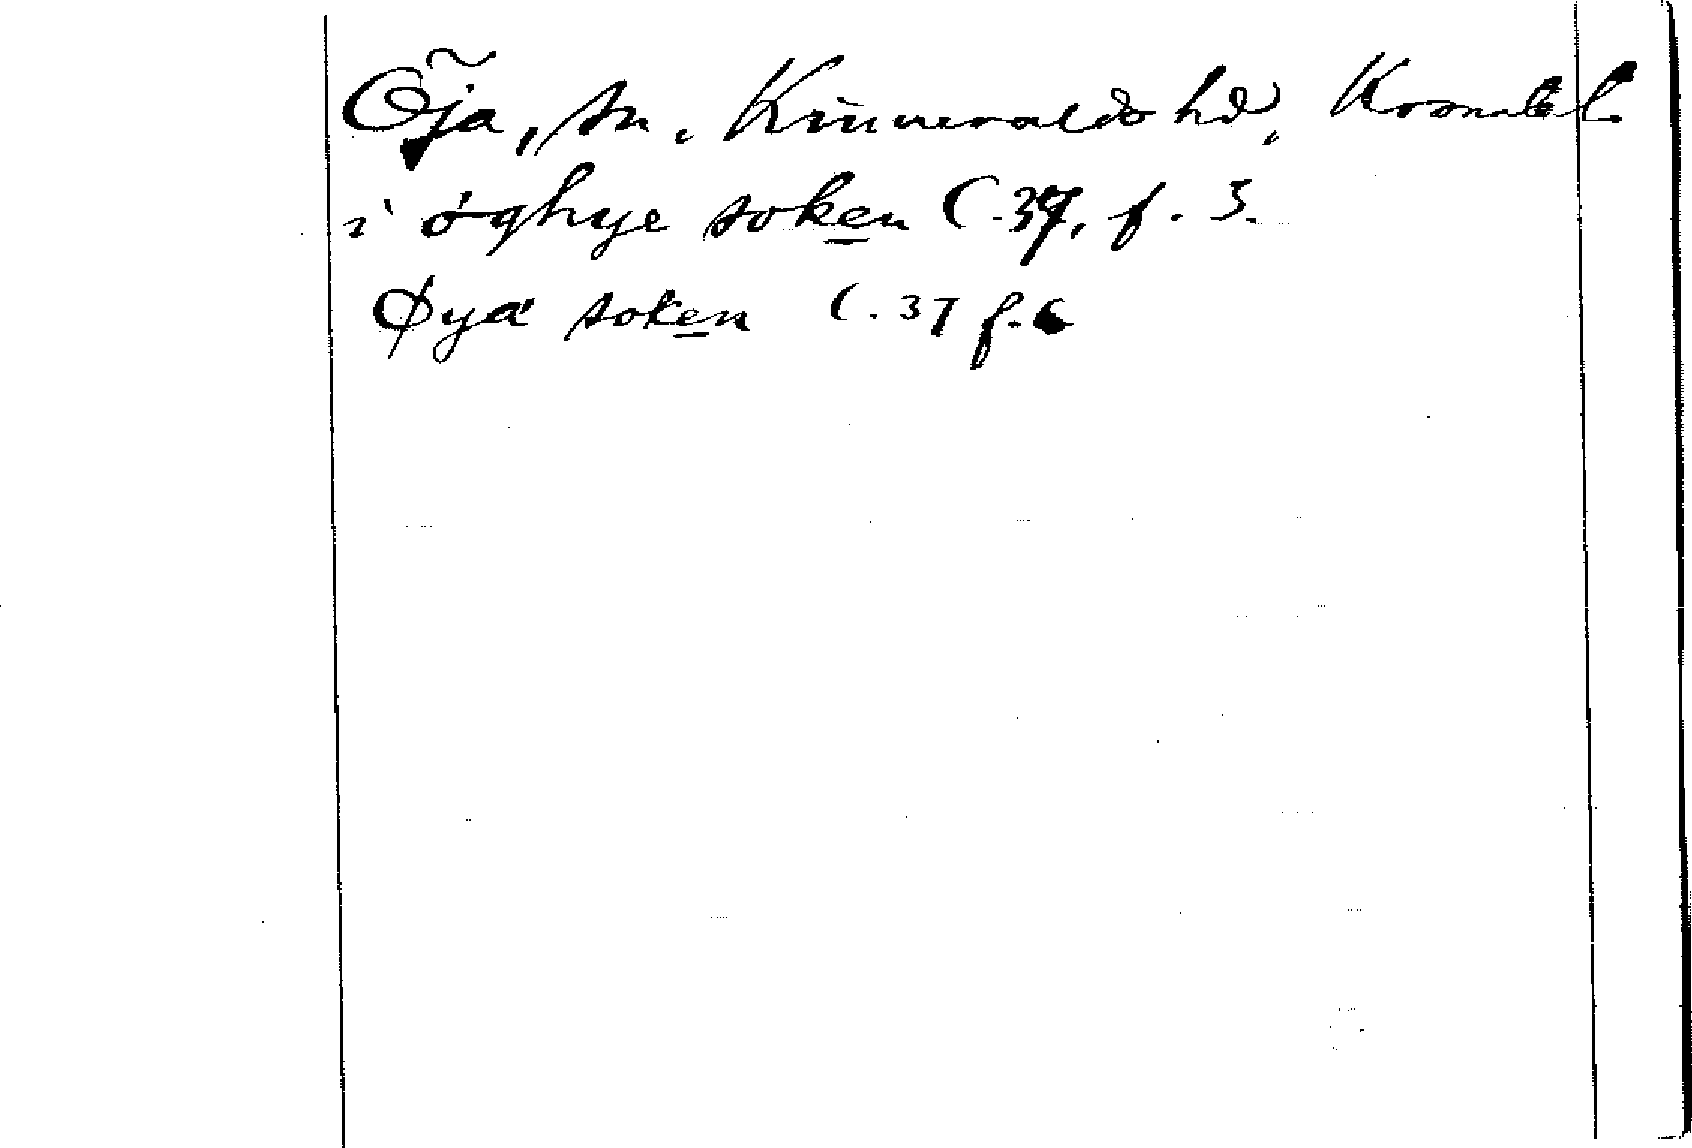 Öja, sn. Kinnevalds hd, Kronob. l.
i øghye soken C. 37, f. 3.
Øya soken C. 37 f. 6